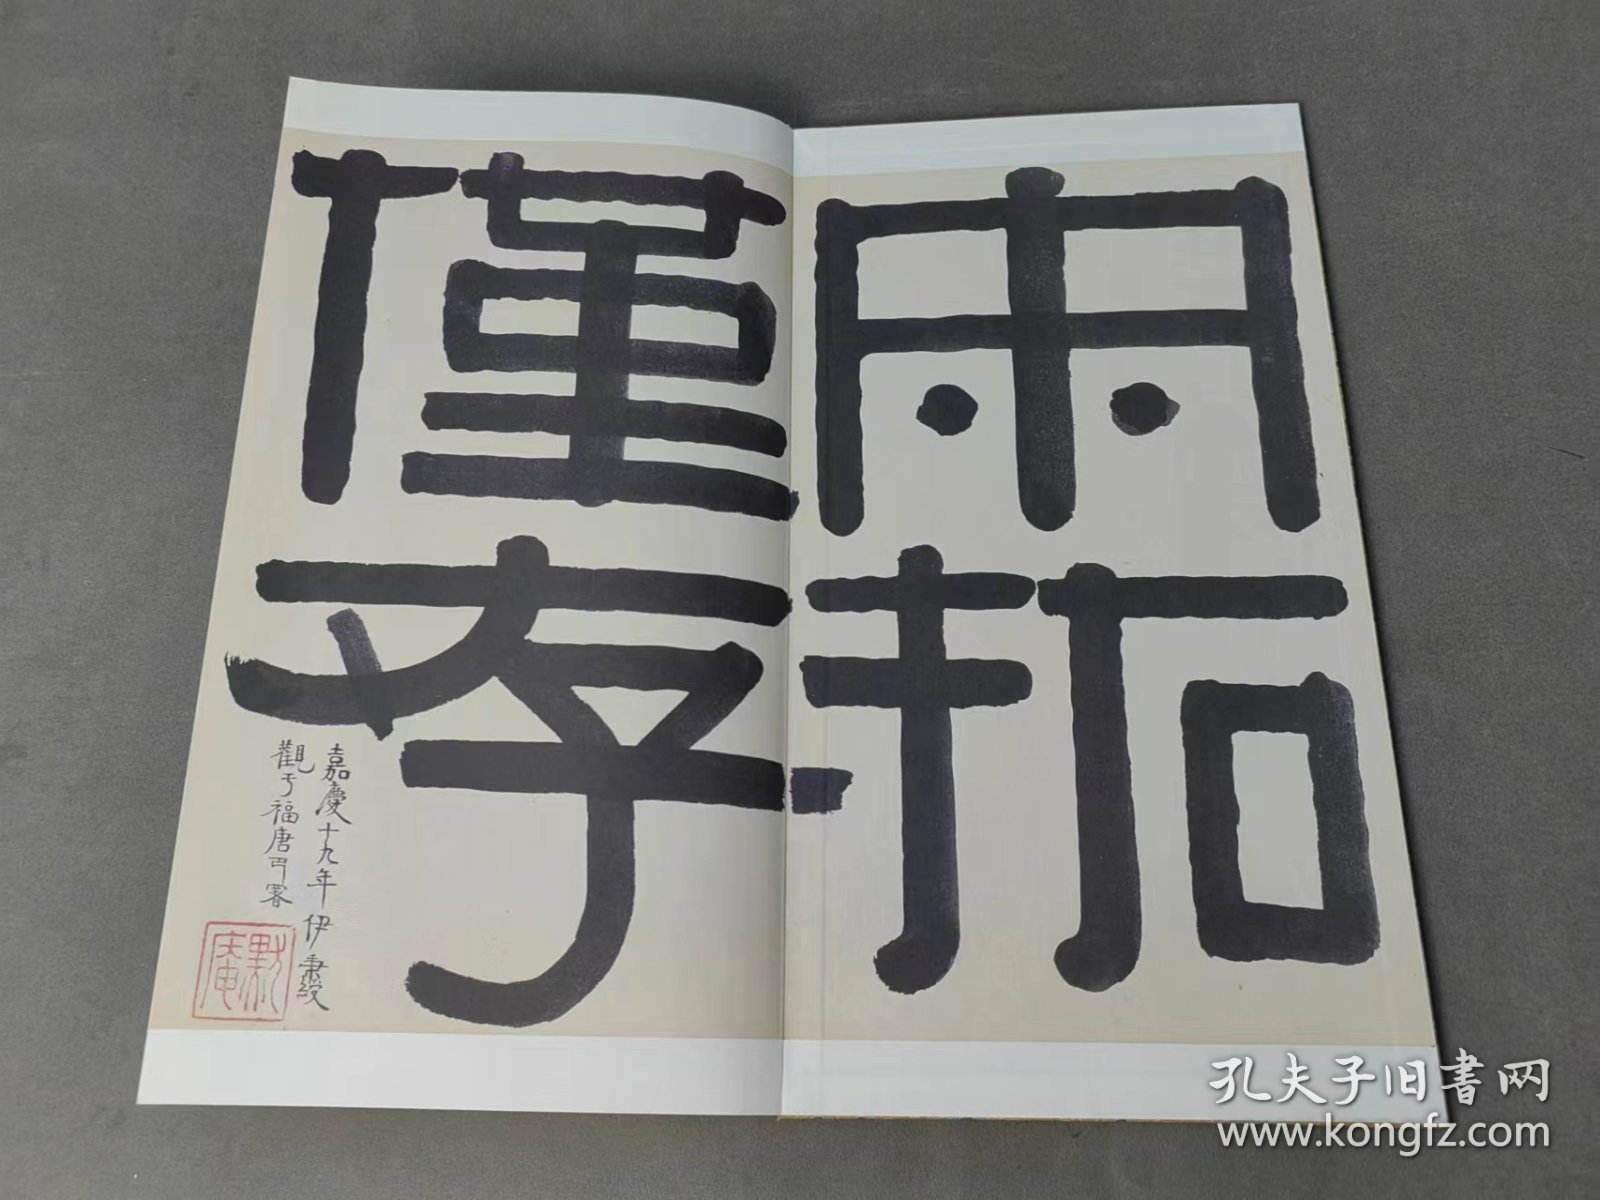 宋拓
僅存
嘉慶十九年伊秉綬
觀于福唐
默庵
孔夫子旧書网
www.kongfz.com